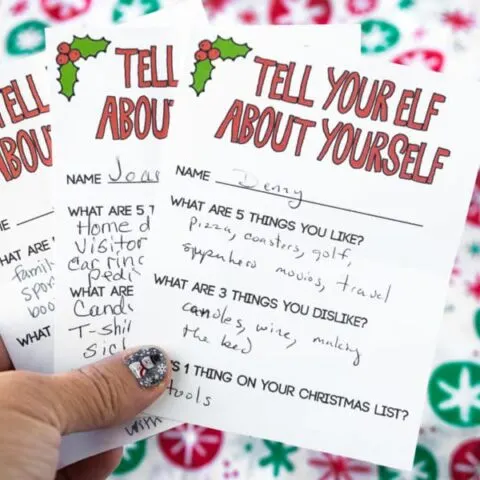 TELL
ABOU
E
WHAT ARE
famil
spor
boo
WHAT
TELL
ABOU
NAME Joan
WHAT ARE 5
Home d
Visitor
Ear ring
Pedi
WHAT ARE
Cand
T-shir
sic
with
TELL YOUR ELF
ABOUT YOURSELF
NAME Denny
WHAT ARE 5 THINGS YOU LIKE?
Pizza, coasters, golf,
superhero movies, travel
WHAT ARE 3 THINGS YOU DISLIKE?
candles, wine, making
the bed
'S 1 THING ON YOUR CHRISTMAS LIST?
tools